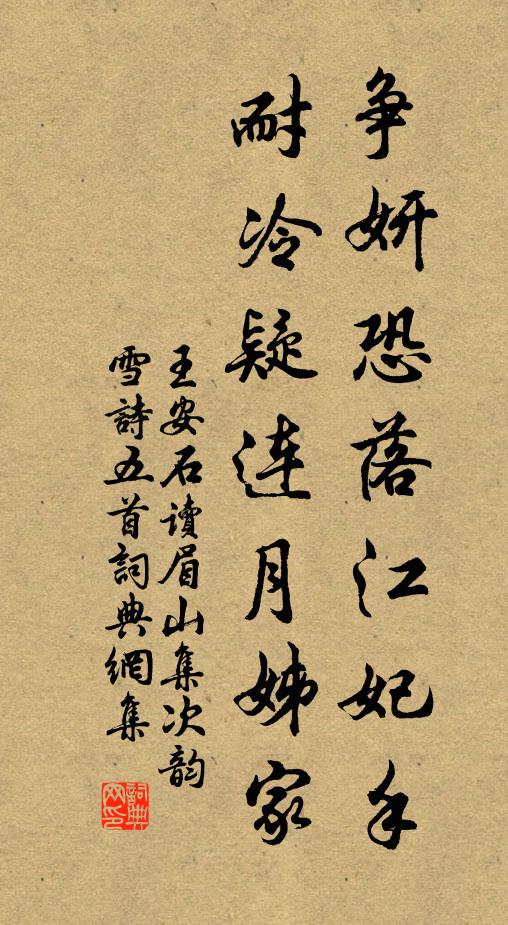 争妍恐落江妃手
耐冷疑连月姊家
王安石讀眉山集次韵
雪詩五首詞典網集
詞典网印